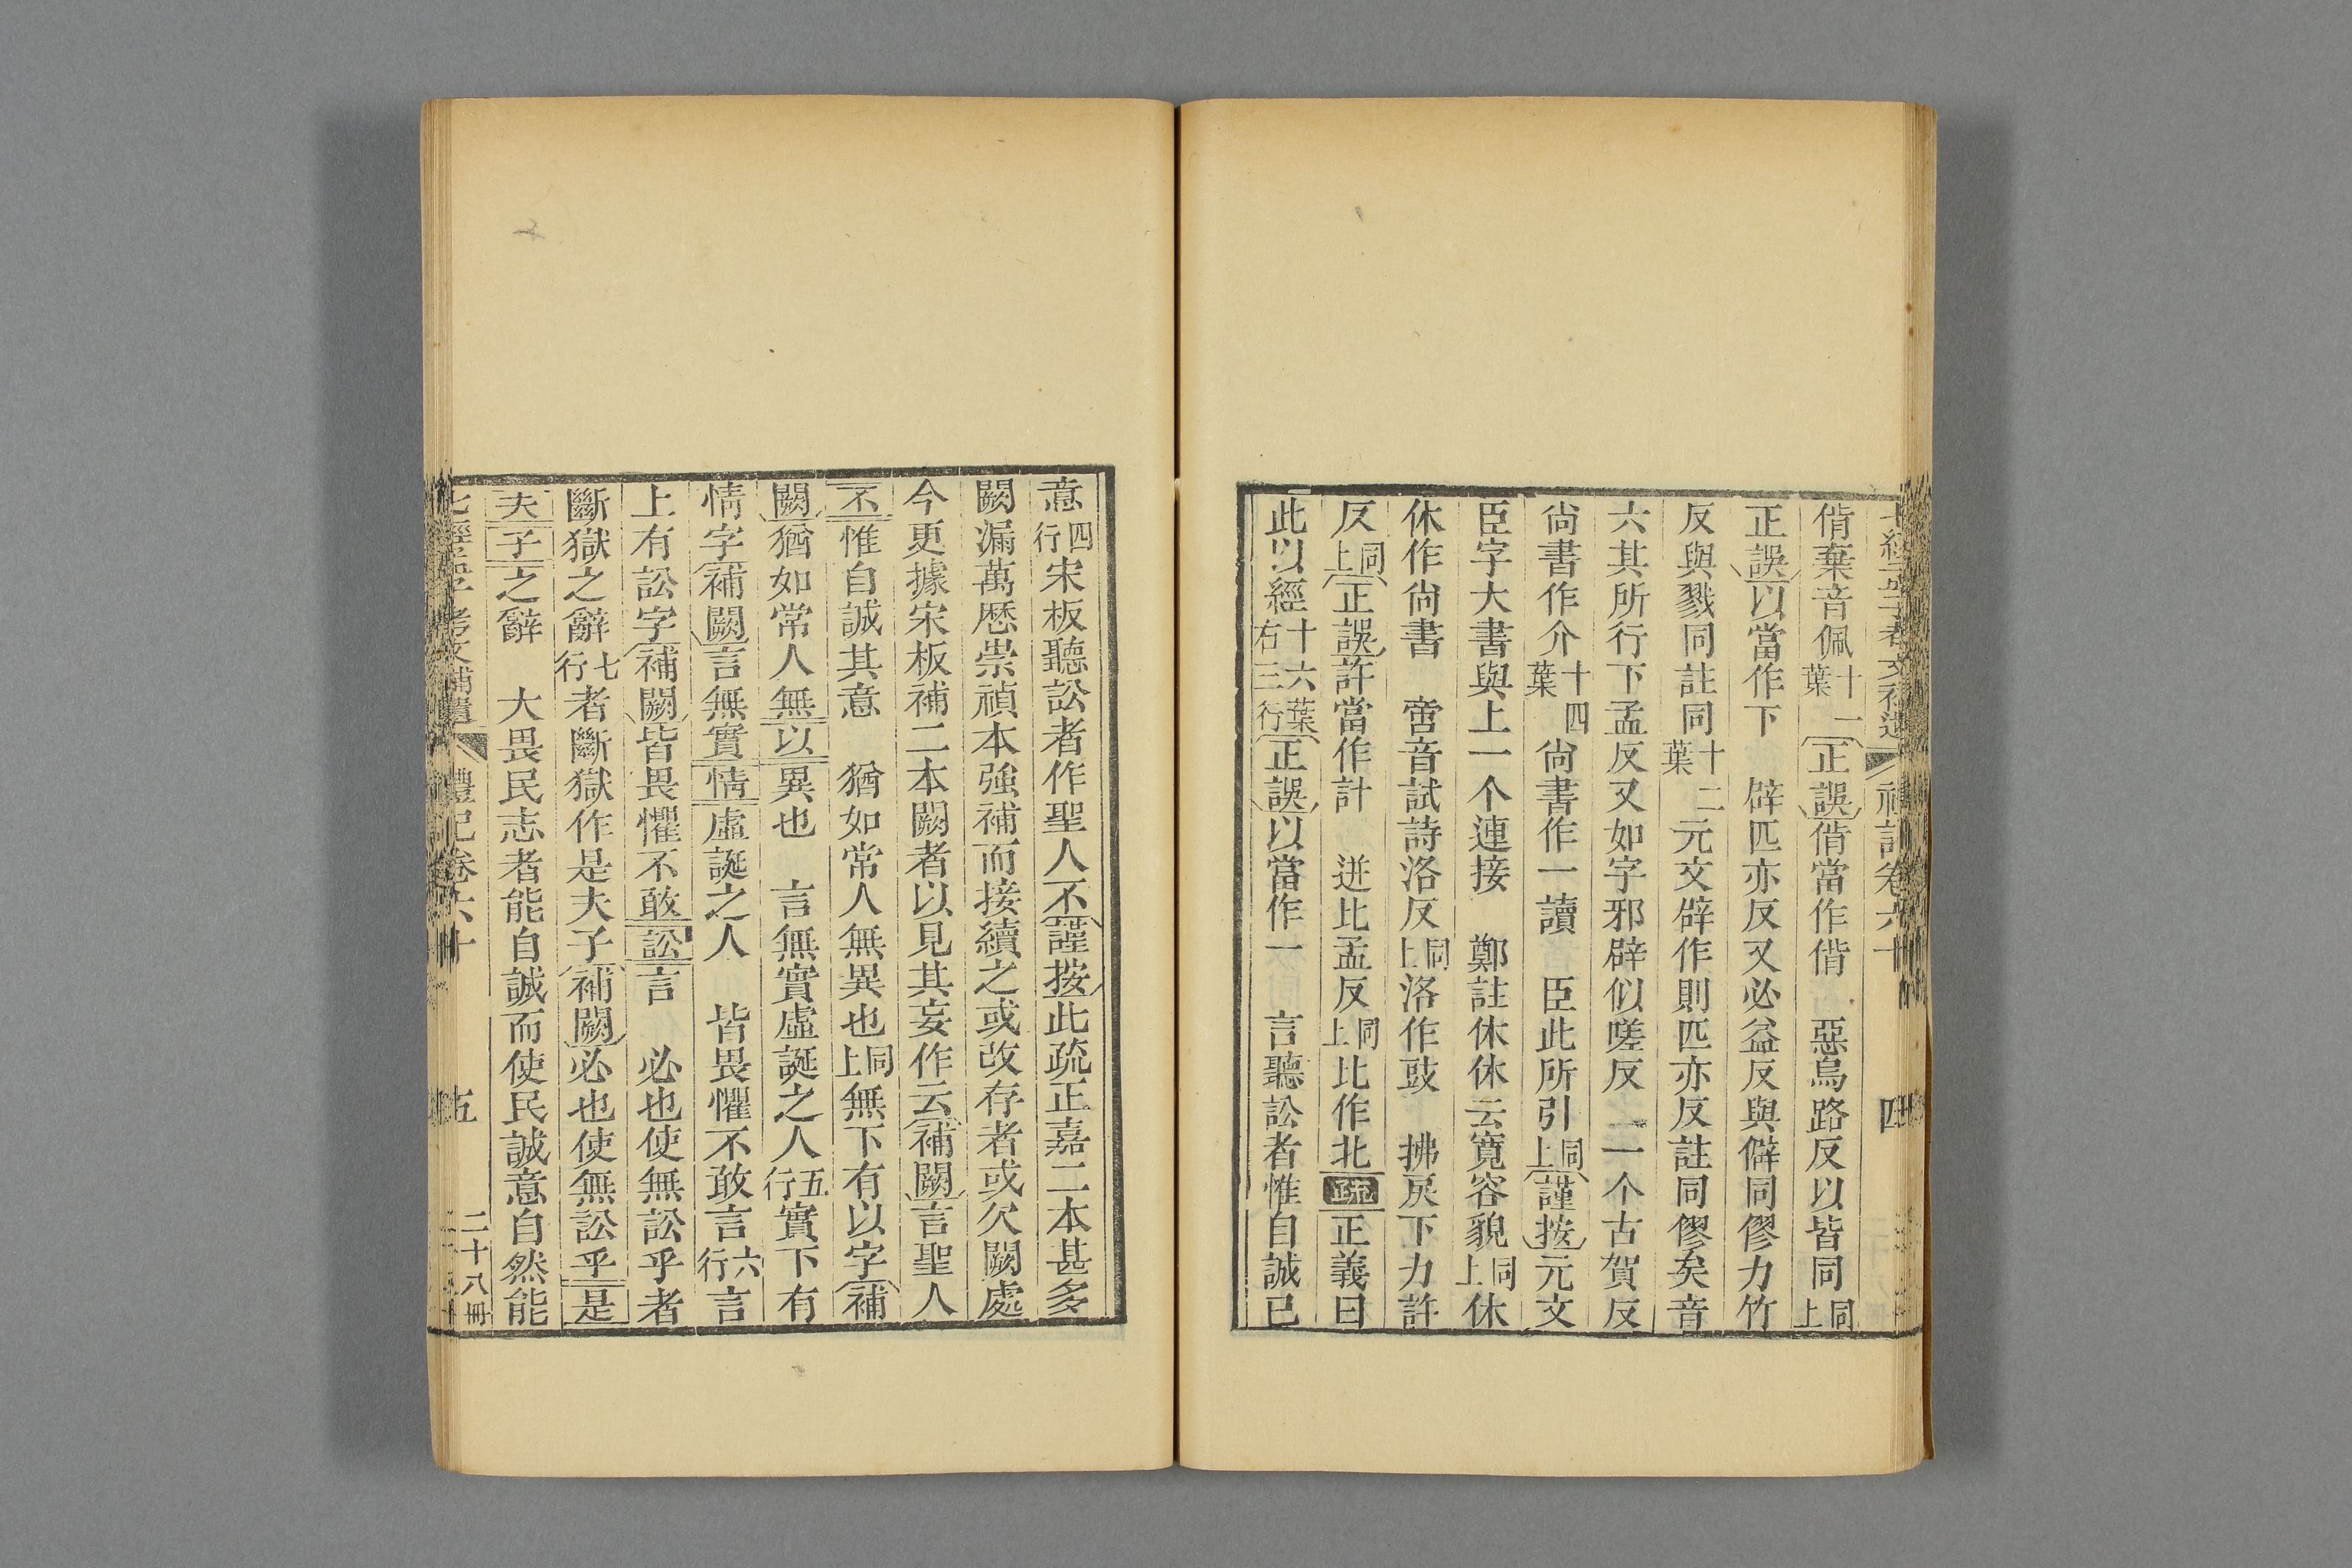 偝棄音佩十一葉正誤偝當作偕　惡烏路反以皆同同上
正誤以當作下　辟匹亦反又必益反與僻同僇力竹
反與戮同註同十二葉元文辟作則匹亦反註同僇矣音
六其所行下孟反又如字邪辟似嗟反　一个古賀反
尙書作介十四葉尙書作一讀　臣此所引同上謹按元文
臣字大書與上一个連接　鄭註休休云寬容貌同上休
休作尙書　啻音試詩洛反同上洛作豉　拂戻下力許
反同上正誤許當作計　迸比孟反同上比作北疏正義曰
此以經十六葉右三行正誤以當作一　言聽訟者惟自誠已
意四行宋板聽訟者作聖人不謹按此疏正嘉二本甚多
闕漏萬曆崇禎本強補而接續之或改存者或欠闕處
今更據宋板補二本闕者以見其妄作云補闕言聖人
不惟自誠其意　猶如常人無異也同上無下有以字補
闕猶如常人無以異也　言無實虛誕之人五行實下有
情字補闕言無實情虛誕之人　皆畏懼不敢言六行言
上有訟字補闕皆畏懼不敢訟言　必也使無訟乎者
斷獄之辭七行者斷獄作是夫子補闕必也使無訟乎是
夫子之辭　大畏民志者能自誠而使民誠意自然能
禮記卷六十　五